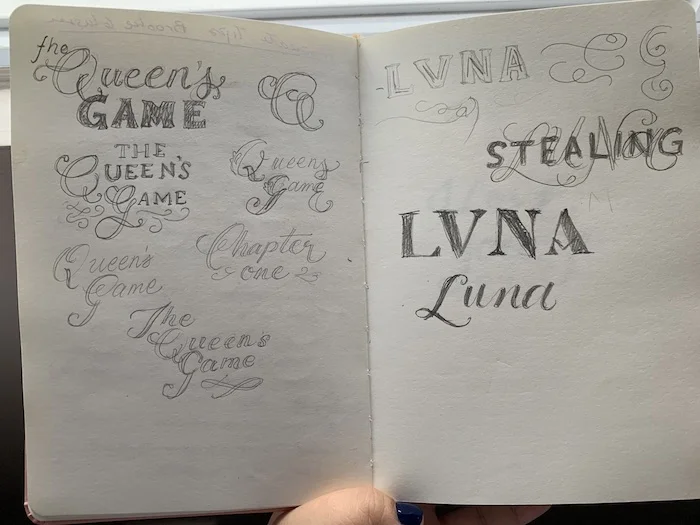 the
Queen's
GAME
Q
THE
QUEEN'S
GAME
Queens
Game
Queen's
Game
Chapter
one
The
Queen's
Game
LVNA
STEALING
LVNA
Luna